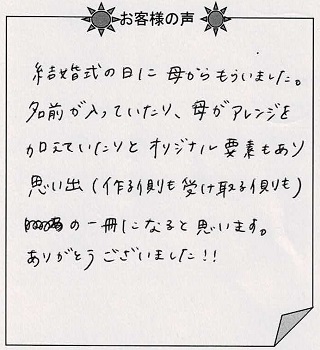 お客様の声
結婚式の日に 母からもらいました。
名前が入っていたり、母がアレンジを
加えていたりと オリジナル要素もあり
思い出（作る側も受け取る側も）
の一冊になると思います。
ありがとうございました！！